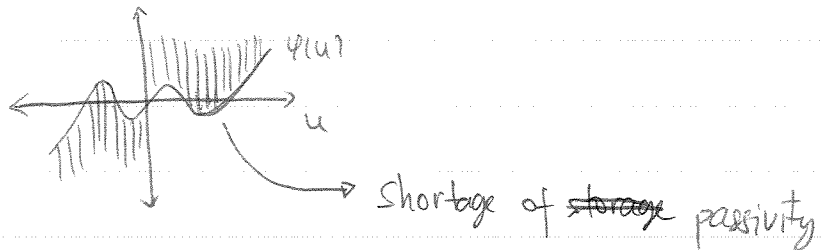 φ(u)
u
Shortage of ~~storage~~ passivity